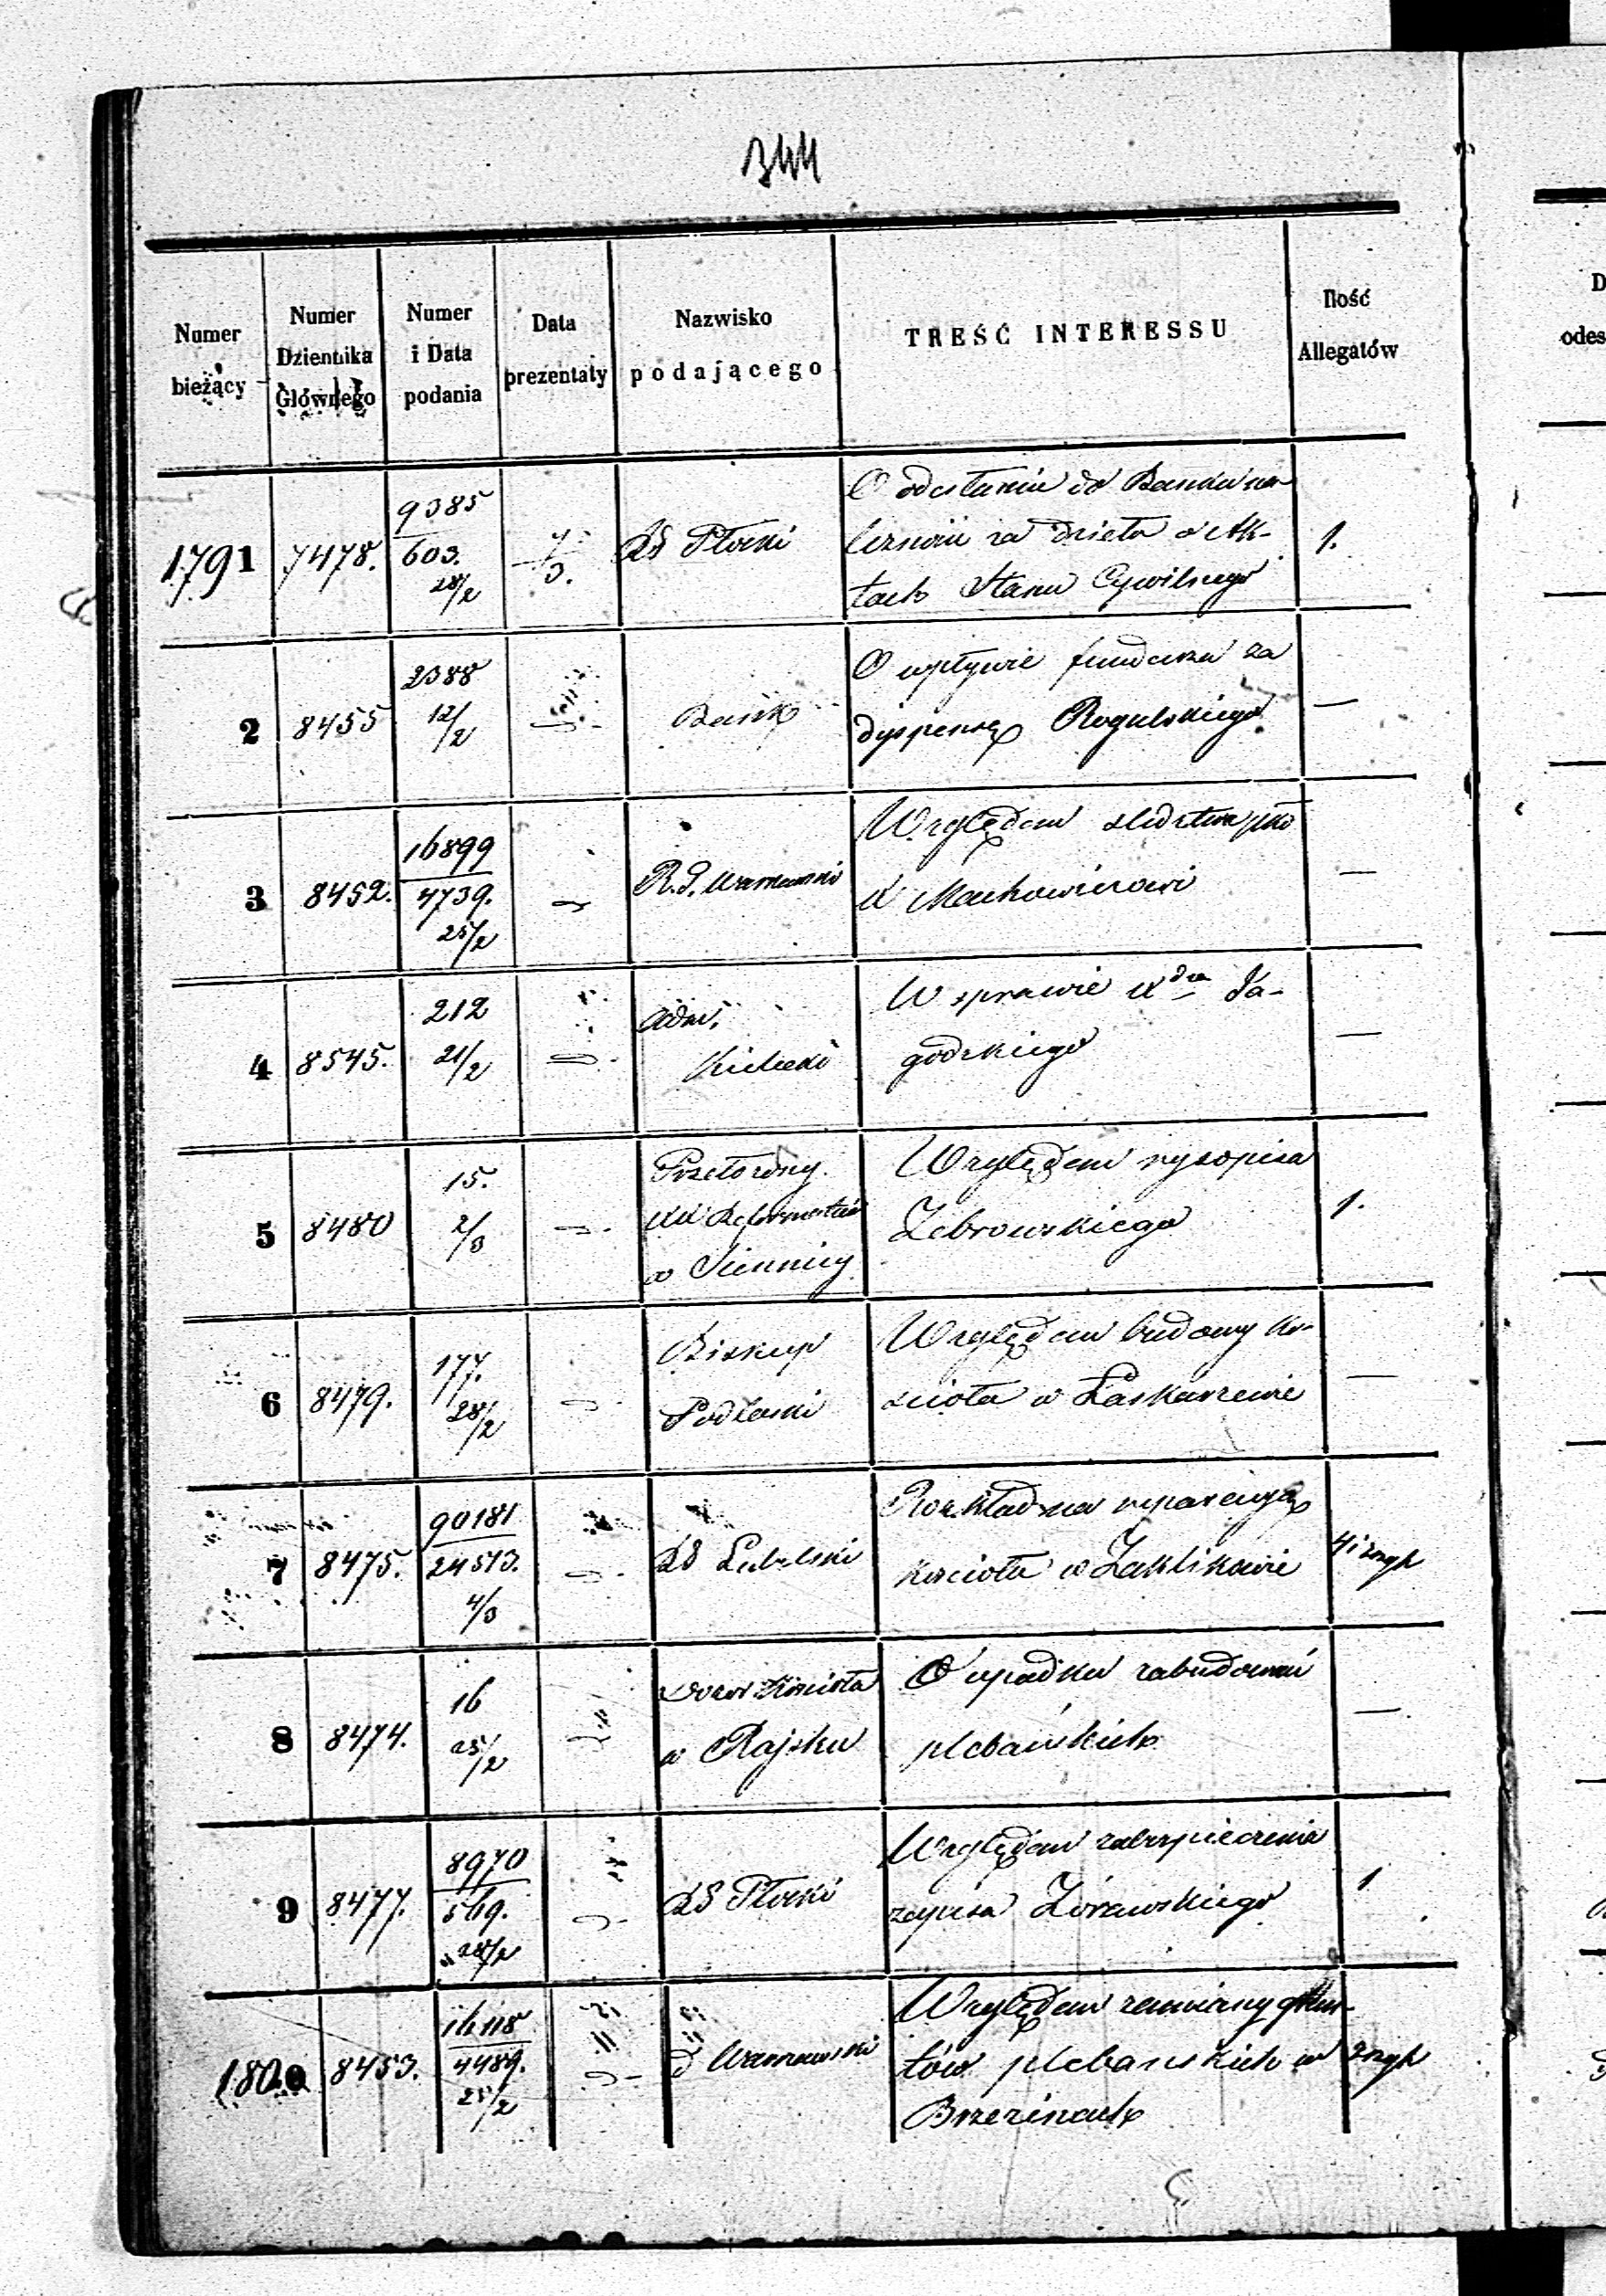 344
Numer bieżący
Numer Dziennika Głównego
Numer i Data podania
Data prezentaty
Nazwisko podającego
TREŚĆ INTERESSU
Ilość Allegatów
1791 7478. 9385 603. 28/2 7/3. Płocki
O odesłaniu do Banku na-
leżności za dzieła o Ak-
tach Stanu Cywilnego
1.
2 8455 2388 12/2 Bank
O wpływie funduszu za
dyspensę Rogulskiego.
—
3 8452. 16899 4739. 25/2 R. G. Warszawski
Względem śledztwa pko
X Machowiczowi
—
4 8545. 212 21/2
Adm.
Kielecki
W sprawie Xdza Ja-
godzkiego
—
5 8480 15. 2/3
Przełożony
XX Reformatów
w Siennicy
Względem rysopisu
Zebrowskiego
1.
6 8479. 177. 28/2
Biskup
Podlaski
Względem budowy ko-
ścioła w Łaskarzewie
—
7 8475. 90181 24513. 4/3 Lubelski
Rozkład na reparacyą
kościoła w Zaklikowie
8 8474. 16 25/2
Dozór Kościoła
w Rajsku
O upadku zabudowań
plebańskich
—
9 8477. 8970 569. 28/2 Płocki
Względem zabezpieczenia
zapisu Żórawskiego
1
1800 8453. 16118 4489. 25/2 Warszawski
Względem zamiany grun-
tów plebańskich w
Brzezinach